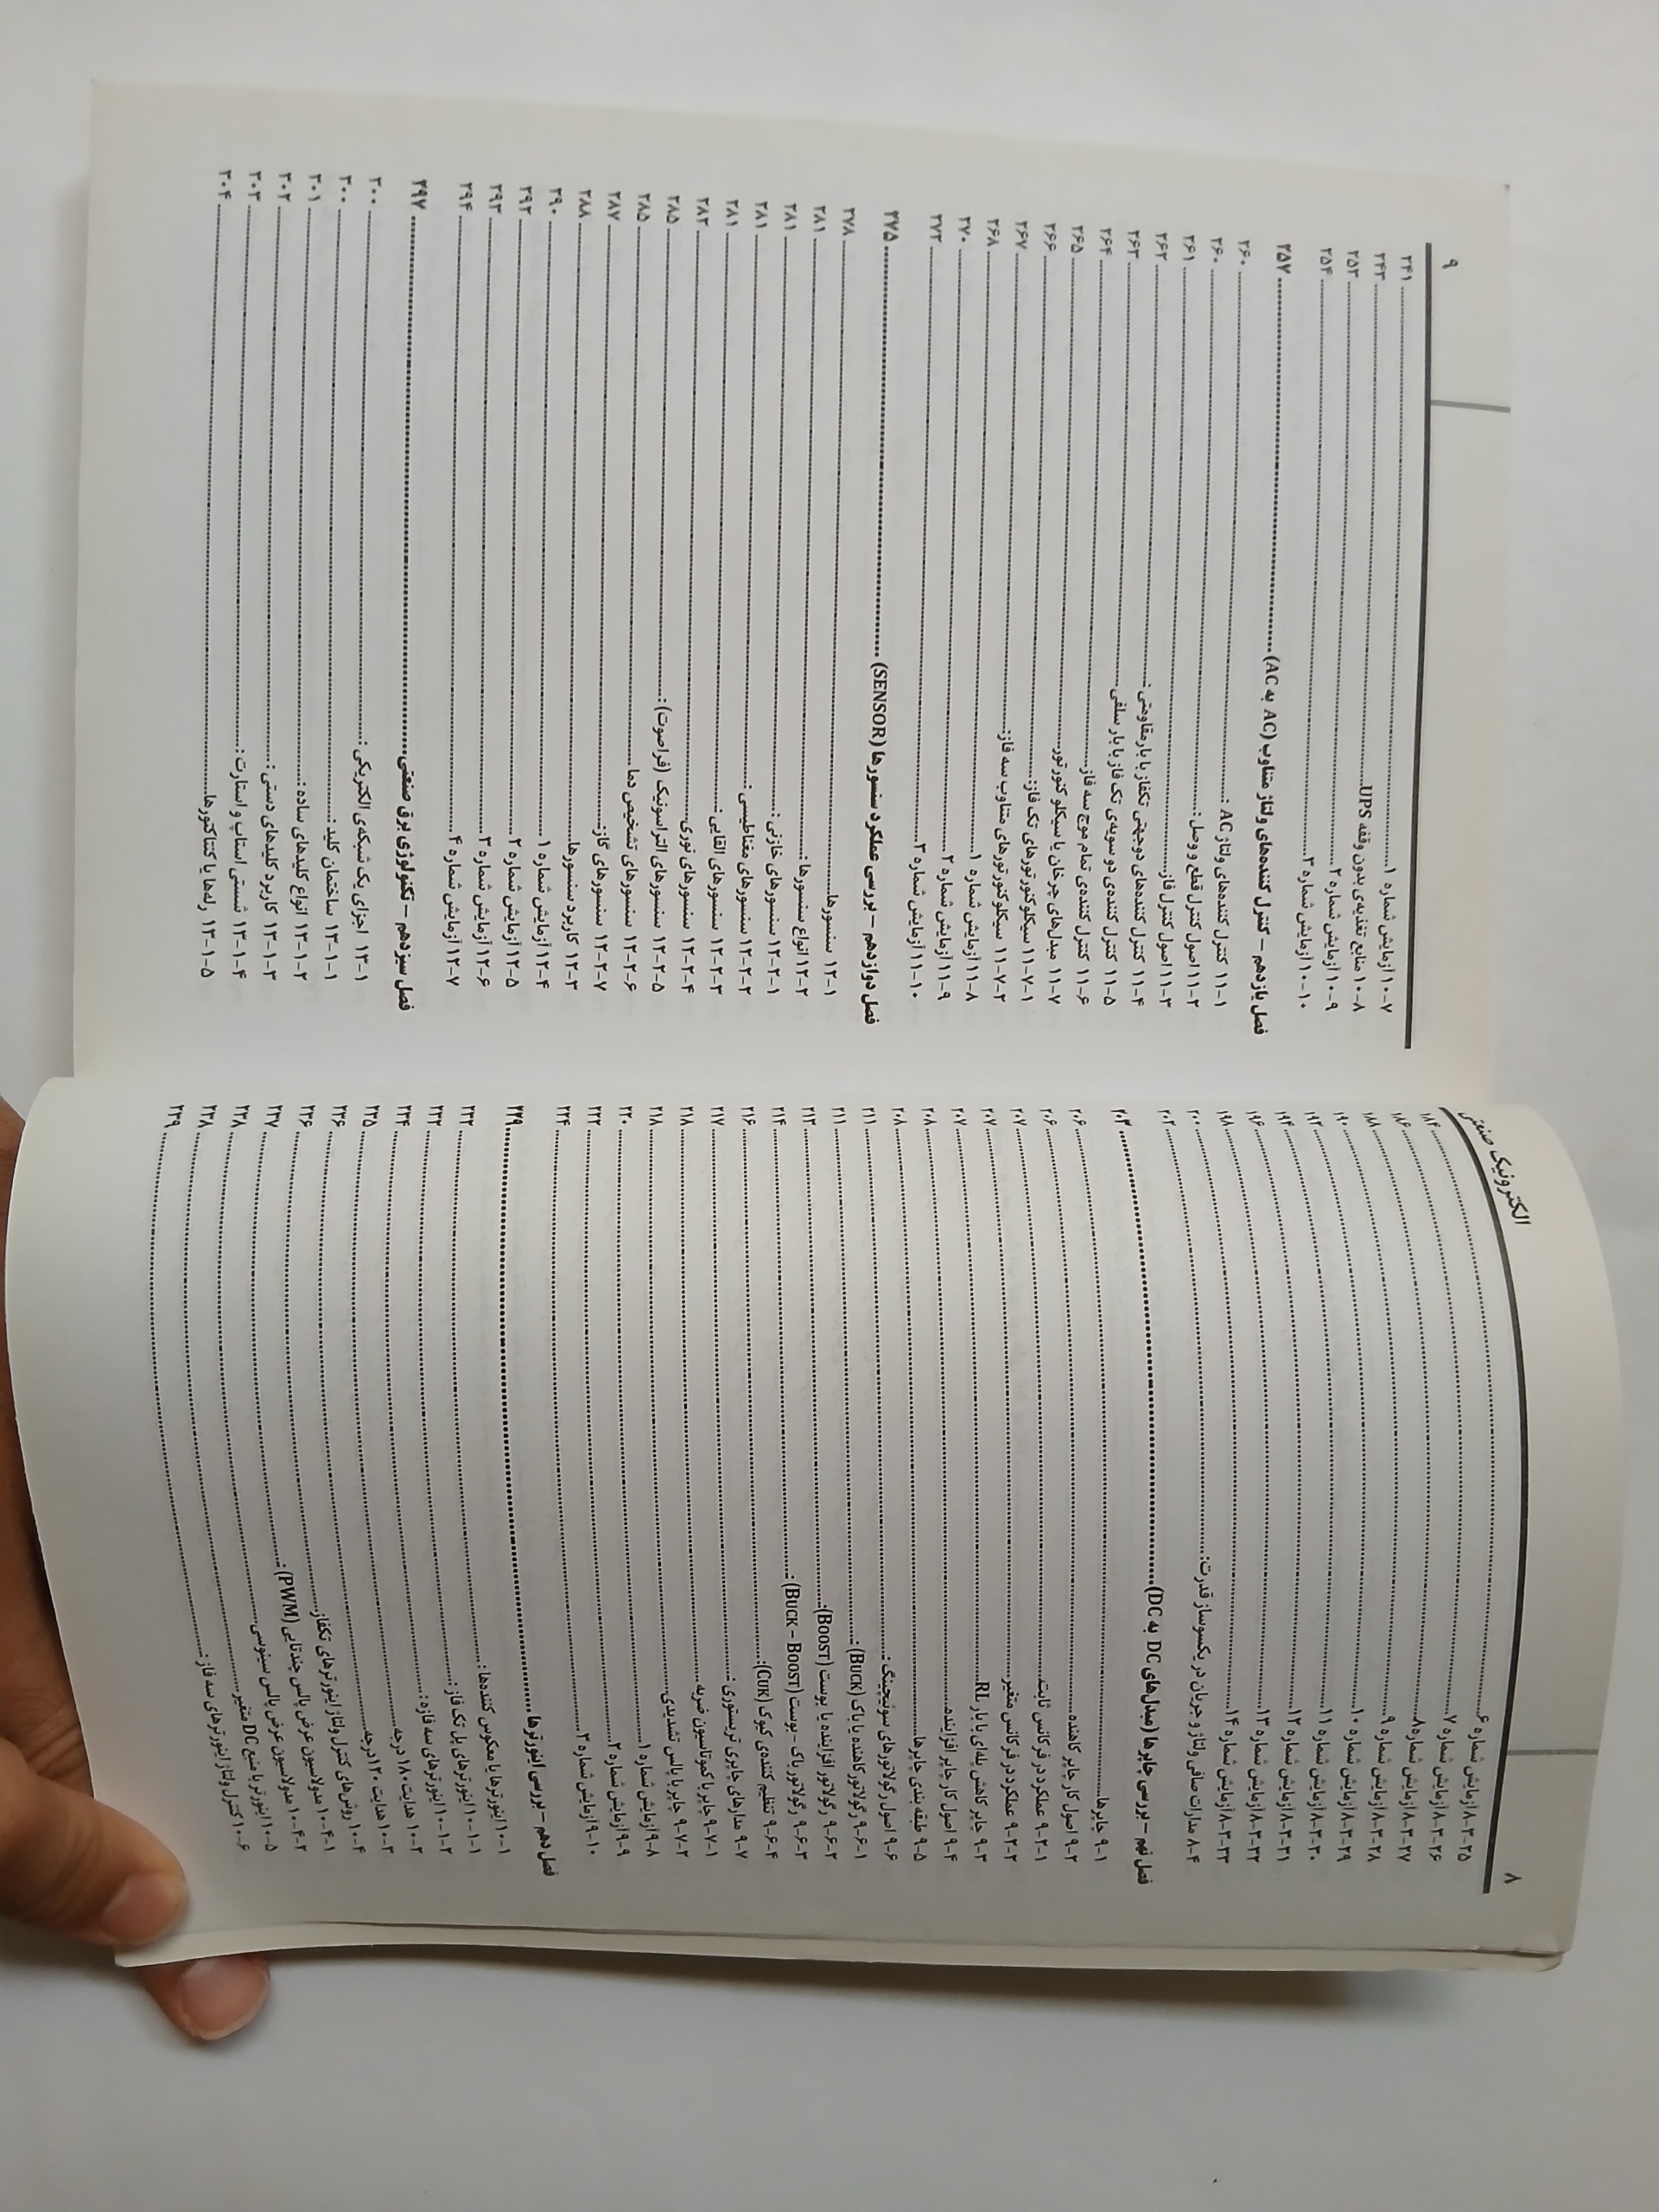 ۸ الکترونیک صنعتی
۸-۳-۲۵ آزمایش شماره ۶ ........ ۱۸۴
۸-۳-۲۶ آزمایش شماره ۷ ........ ۱۸۶
۸-۳-۲۷ آزمایش شماره ۸ ........ ۱۸۸
۸-۳-۲۸ آزمایش شماره ۹ ........ ۱۹۰
۸-۳-۲۹ آزمایش شماره ۱۰ ........ ۱۹۲
۸-۳-۳۰ آزمایش شماره ۱۱ ........ ۱۹۴
۸-۳-۳۱ آزمایش شماره ۱۲ ........ ۱۹۶
۸-۳-۳۲ آزمایش شماره ۱۳ ........ ۱۹۸
۸-۳-۳۳ آزمایش شماره ۱۴ ........ ۲۰۰
۸-۴ مدارات صافی ولتاژ و جریان در یکسوساز قدرت: ........ ۲۰۲
فصل نهم – بررسی چاپرها (مبدل‌های DC به DC) ........ ۲۰۳
۹-۱ چاپرها ........ ۲۰۶
۹-۲ اصول کار چاپر کاهنده ........ ۲۰۶
۹-۲-۱ عملکرد در فرکانس ثابت ........ ۲۰۷
۹-۲-۲ عملکرد در فرکانس متغیر ........ ۲۰۷
۹-۳ چاپر کاهش پله‌ای با بار RL ........ ۲۰۷
۹-۴ اصول کار چاپر افزاینده ........ ۲۰۸
۹-۵ طبقه بندی چاپرها ........ ۲۰۸
۹-۶ اصول رگولاتورهای سوئیچینگ: ........ ۲۱۱
۹-۶-۱ رگولاتور کاهنده یا باک (BUCK): ........ ۲۱۱
۹-۶-۲ رگولاتور افزاینده یا بوست (BOOST): ........ ۲۱۳
۹-۶-۳ رگولاتور باک – بوست (BUCK – BOOST): ........ ۲۱۴
۹-۶-۴ تنظیم کننده‌ی کیوک (CUK): ........ ۲۱۶
۹-۷ مدارهای چاپری تریستوری: ........ ۲۱۷
۹-۷-۱ چاپر با کموتاسیون ضربه ........ ۲۱۸
۹-۷-۲ چاپر با پالس تشدیدی ........ ۲۱۸
۹-۸ آزمایش شماره ۱ ........ ۲۲۰
۹-۹ آزمایش شماره ۲ ........ ۲۲۲
۹-۱۰ آزمایش شماره ۳ ........ ۲۲۴
فصل دهم – بررسی اینورترها ........ ۲۲۹
۱۰-۱ اینورترها یا معکوس کننده‌ها: ........ ۲۳۲
۱۰-۱-۱ اینورترهای پل تک فاز: ........ ۲۳۲
۱۰-۱-۲ اینورترهای سه فازه: ........ ۲۳۴
۱۰-۲ هدایت ۱۸۰ درجه ........ ۲۳۵
۱۰-۳ هدایت ۱۲۰ درجه ........ ۲۳۶
۱۰-۴ روش‌های کنترل ولتاژ اینورترهای تکفاز ........ ۲۳۶
۱۰-۴-۱ مدولاسیون عرض پالس چندتایی (PWM): ........ ۲۳۷
۱۰-۴-۲ مدولاسیون عرض پالس سینوسی ........ ۲۳۸
۱۰-۵ اینورتر با منبع DC متغیر ........ ۲۳۸
۱۰-۶ کنترل ولتاژ اینورترهای سه فاز: ........ ۲۳۹
۹
۱۰-۷ آزمایش شماره ۱ ........ ۲۴۱
۱۰-۸ منابع تغذیه‌ی بدون وقفه UPS ........ ۲۴۳
۱۰-۹ آزمایش شماره ۲ ........ ۲۵۲
۱۰-۱۰ آزمایش شماره ۳ ........ ۲۵۴
فصل یازدهم – کنترل کننده‌های ولتاژ متناوب (AC به AC) ........ ۲۵۷
۱۱-۱ کنترل کننده‌های ولتاژ AC : ........ ۲۶۰
۱۱-۲ اصول کنترل قطع و وصل: ........ ۲۶۰
۱۱-۳ اصول کنترل فاز ........ ۲۶۱
۱۱-۴ کنترل کننده‌های دوجهتی تکفاز با بار مقاومتی: ........ ۲۶۲
۱۱-۵ کنترل کننده‌ی دو سویه‌ی تک فاز با بار سلفی ........ ۲۶۳
۱۱-۶ کنترل کننده‌ی تمام موج سه فاز ........ ۲۶۴
۱۱-۷ مبدل‌های چرخان یا سیکلو کنورتور ........ ۲۶۵
۱۱-۷-۱ سیکلوکنورتورهای تک فاز: ........ ۲۶۶
۱۱-۷-۲ سیکلوکنورتورهای متناوب سه فاز ........ ۲۶۷
۱۱-۸ آزمایش شماره ۱ ........ ۲۶۸
۱۱-۹ آزمایش شماره ۲ ........ ۲۷۰
۱۱-۱۰ آزمایش شماره ۳ ........ ۲۷۲
فصل دوازدهم – بررسی عملکرد سنسورها (SENSOR) ........ ۲۷۵
۱۲-۱ سنسورها ........ ۲۷۸
۱۲-۲ انواع سنسورها : ........ ۲۸۱
۱۲-۲-۱ سنسورهای خازنی : ........ ۲۸۱
۱۲-۲-۲ سنسورهای مغناطیسی : ........ ۲۸۱
۱۲-۲-۳ سنسورهای القایی : ........ ۲۸۱
۱۲-۲-۴ سنسورهای نوری ........ ۲۸۳
۱۲-۲-۵ سنسورهای التراسونیک (فراصوت) : ........ ۲۸۵
۱۲-۲-۶ سنسورهای تشخیص دما ........ ۲۸۵
۱۲-۲-۷ سنسورهای گاز: ........ ۲۸۷
۱۲-۳ کاربرد سنسورها ........ ۲۸۸
۱۲-۴ آزمایش شماره ۱ ........ ۲۹۰
۱۲-۵ آزمایش شماره ۲ ........ ۲۹۲
۱۲-۶ آزمایش شماره ۳ ........ ۲۹۳
۱۲-۷ آزمایش شماره ۴ ........ ۲۹۴
فصل سیزدهم – تکنولوژی برق صنعتی ........ ۲۹۷
۱۳-۱ اجزای یک شبکه‌ی الکتریکی : ........ ۳۰۰
۱۳-۱-۱ ساختمان کلید : ........ ۳۰۰
۱۳-۱-۲ انواع کلیدهای ساده : ........ ۳۰۱
۱۳-۱-۳ کاربرد کلیدهای دستی : ........ ۳۰۲
۱۳-۱-۴ شستی استاپ و استارت : ........ ۳۰۳
۱۳-۱-۵ رله‌ها یا کنتاکتورها ........ ۳۰۴